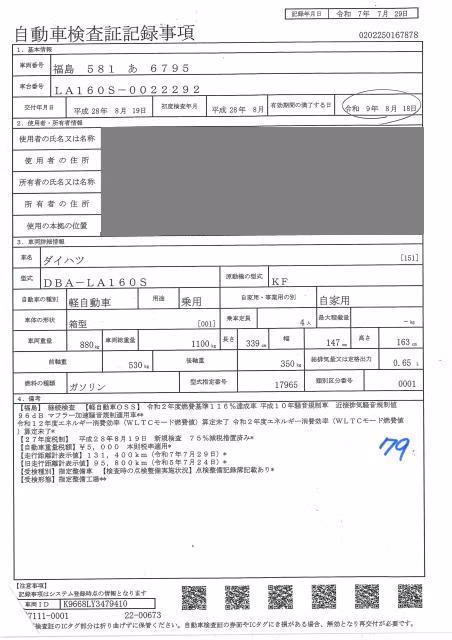 記録年月日 令和 7年 7月 29日
自動車検査証記録事項
0202250167878
1. 基本情報
車両番号 福島 581 あ 6795
車台番号 LA160S-0022292
交付年月日 平成 28年 8月 19日 初度検査年月 平成 28年 8月 有効期間の満了する日 令和 9年 8月 18日
2. 使用者・所有者情報
使用者の氏名又は名称
使用者の住所
所有者の氏名又は名称
所有者の住所
使用の本拠の位置
3. 車両詳細情報
車名 ダイハツ [151]
型式 DBA-LA160S 原動機の型式 KF
自動車の種別 軽自動車 用途 乗用 自家用・事業用の別 自家用
車体の形状 箱型 [001] 乗車定員 4人 最大積載量 -kg
車両重量 880kg 車両総重量 1100kg 長さ 339cm 幅 147cm 高さ 163cm
前軸重 530kg 後軸重 350kg 総排気量又は定格出力 0.65L
燃料の種類 ガソリン 型式指定番号 17965 類別区分番号 0001
4. 備考
【福島】 継続検査 【軽自動車OSS】 令和2年度燃費基準116%達成車 平成10年騒音規制車 近接排気騒音規制値
96dB マフラー加速騒音規制適用車**
令和12年度エネルギー消費効率(WLTCモード燃費値)算定未了 令和2年度エネルギー消費効率(WLTCモード燃費値
)算定未了*
【27年度税制】 平成28年8月19日 新規検査 75%減税措置済み*
【自動車重量税額】¥5,000 本則税率適用*
【走行距離計表示値】131,400km(令和7年7月29日)*
【旧走行距離計表示値】95,800km(令和5年7月24日)*
【受検種別】指定整備車 【検査時の点検整備実施状況】点検整備記録簿記載あり*
【受検形態】指定整備工場**
79
【注意事項】
記録事項はシステム登録時点の情報となります
車両ID K9668LY3479410
7111-0001 22-00673
検査証のICタグ部分は折り曲げずに保管ください。自動車検査証の券面やICタグにき損がある場合、無効となり再交付が必要です。